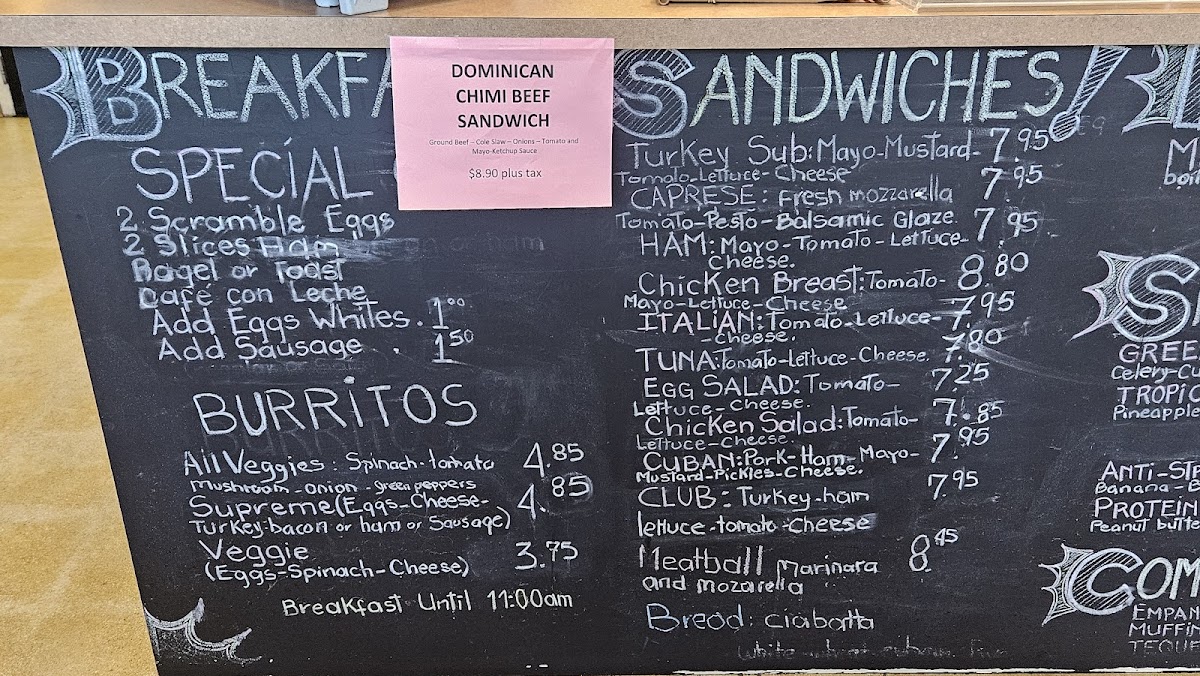 BREAKFA
SPECIAL
2 Scramble Eggs
2 Slices Ham
Bagel or Toast
Café con Leche
Add Eggs Whites . 1.00
Add Sausage . 1.50
BURRITOS
All Veggies: Spinach-tomato 4.85
mushroom-onion-green peppers
Supreme(Eggs-Cheese- 4.85
Turkey-bacon or ham or Sausage)
Veggie 3.75
(Eggs-Spinach-Cheese)
Breakfast Until 11:00am
DOMINICAN
CHIMI BEEF
SANDWICH
Ground Beef – Cole Slaw – Onions – Tomato and
Mayo-Ketchup Sauce
$8.90 plus tax
SANDWICHES!
Turkey Sub: Mayo-Mustard- 7.95
Tomato-Lettuce-Cheese
CAPRESE: Fresh mozzarella 7.95
Tomato-Pesto-Balsamic Glaze.
HAM: Mayo-Tomato-Lettuce- 7.95
Cheese.
Chicken Breast: Tomato- 8.80
Mayo-Lettuce-Cheese
ITALIAN: Tomato-Lettuce- 7.95
-Cheese.
TUNA: Tomato-Lettuce-Cheese. 7.80
EGG SALAD: Tomato- 7.25
Lettuce-Cheese.
Chicken Salad: Tomato- 7.85
Lettuce-Cheese.
CUBAN: Pork-Ham-Mayo- 7.95
Mustard-Pickles-Cheese.
CLUB: Turkey-ham 7.95
lettuce-tomato-cheese
Meatball Marinara 8.45
and mozarella
Bread: ciabatta
white
M
boi
S
GREE
Celery-Cu
TROPIC
Pineapple
ANTI-ST
Banana-B
PROTEIN
Peanut butte
COM
EMPAN
MUFFIN
TEQUE